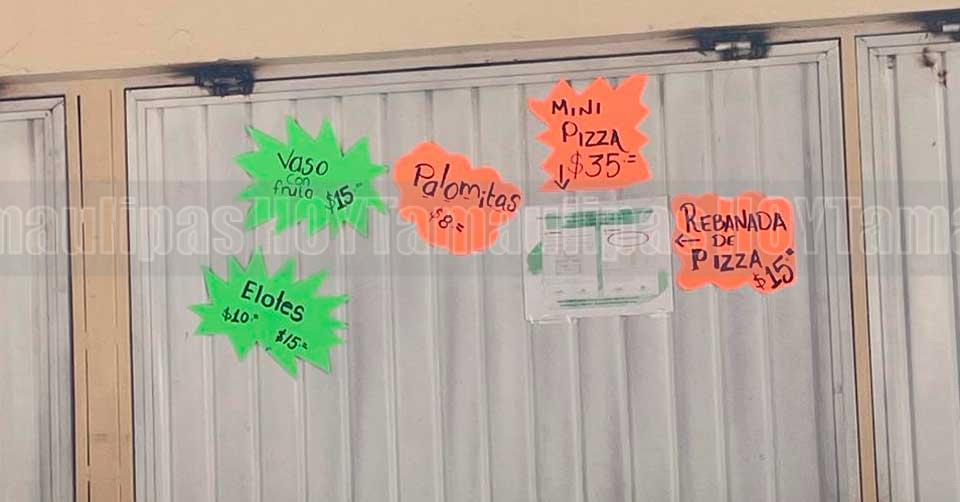 Vaso
con
fruta $15.=
Palomitas
$8.=
MINI
PIZZA
$35.=
REBANADA
DE
PIZZA
$15.=
Elotes
$10.=
$15.=
maulipasHOYTamaulipasHOYTama